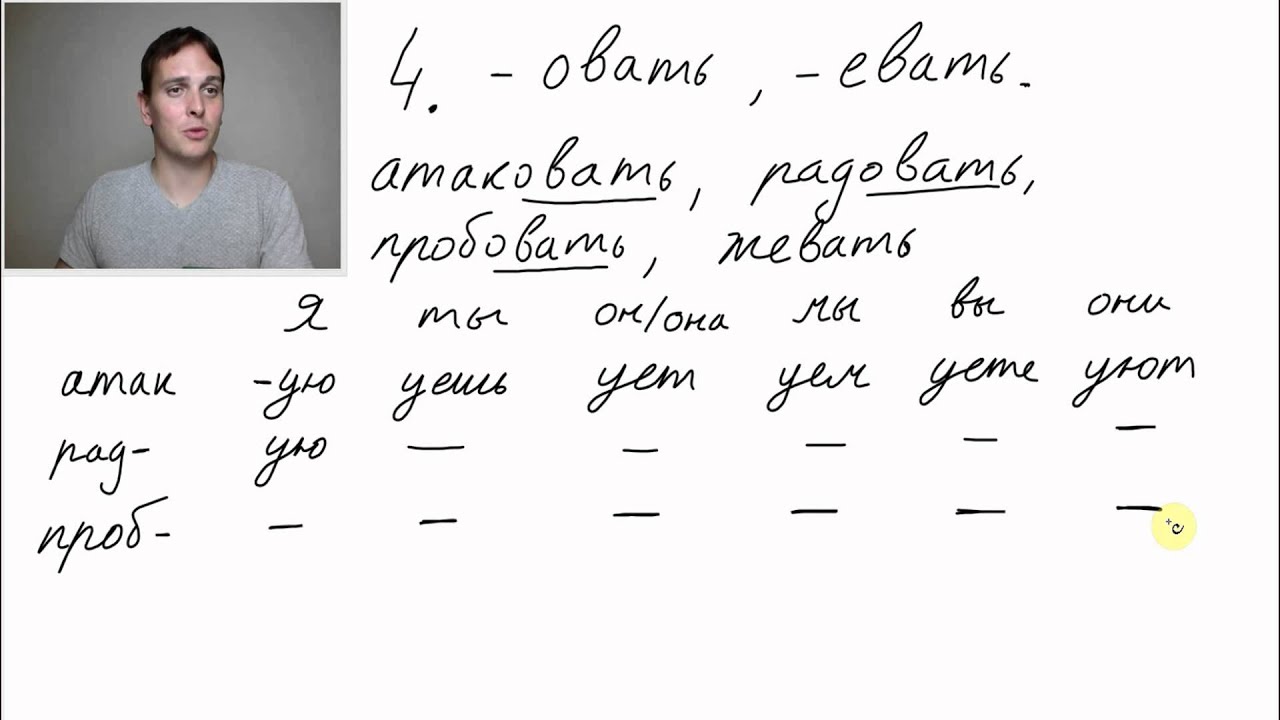 4. -овать, -евать.
атаковать, радовать,
пробовать, жевать
Я ты он/она мы вы они
атак -ую уешь ует уем уете уют
рад- ую — — — — —
проб- — — — — — —